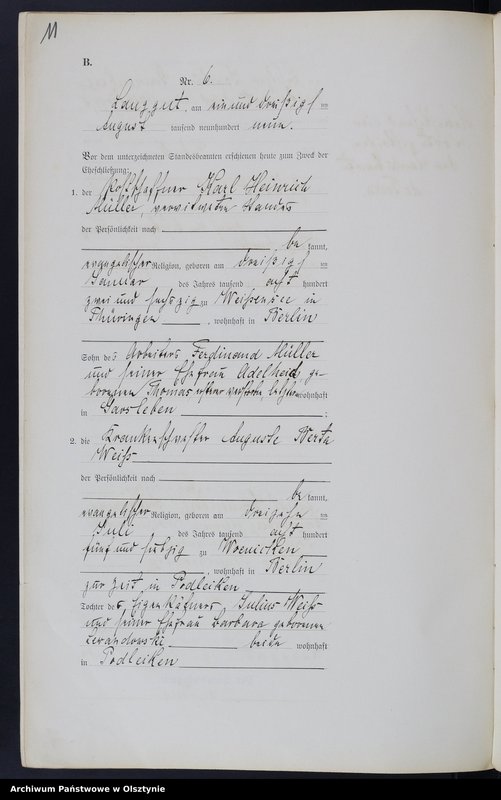 11
B.
Nr. 6.
Langgut, am ein und dreißigsten
August tausend neunhundert neun.
Vor dem unterzeichneten Standesbeamten erschienen heute zum Zweck der
Eheschließung:
1. der Postschaffner Karl Heinrich
Müller, verwitweten Standes
der Persönlichkeit nach
be kannt,
evangelischer Religion, geboren am dreißigsten
Januar des Jahres tausend acht hundert
zwei und sechszig zu Weißensee in
Thüringen, wohnhaft in Berlin
Sohn des Arbeiters Ferdinand Müller
und seiner Ehefrau Adelheid, ge-
borenen Thomas, ersterer verstorben, letztere wohnhaft
in Garsleben ;
2. die Krankenschwester Auguste Berta
Weiß
der Persönlichkeit nach
be kannt,
evangelischer Religion, geboren am dreizehnten
Juli des Jahres tausend acht hundert
fünf und siebzig zu Woenicken
, wohnhaft in Berlin
zur Zeit in Podleiken
Tochter des Eigenkäthners Julius Weiß
und seiner Ehefrau Barbara geborenen
Lewandowski beide wohnhaft
in Podleiken
Archiwum Państwowe w Olsztynie